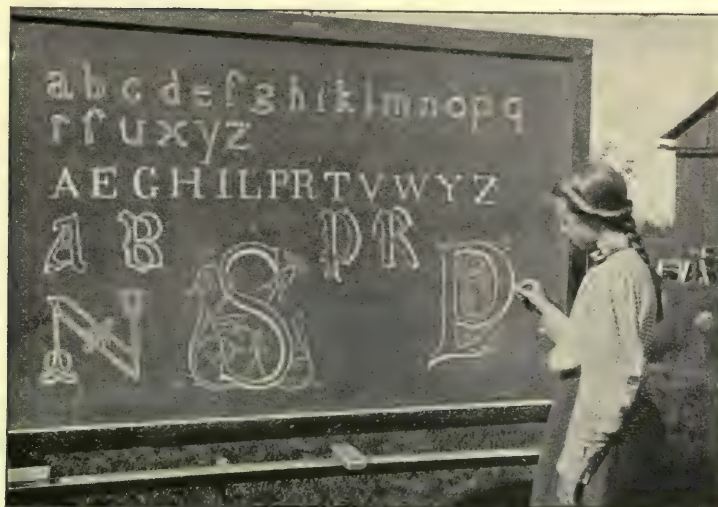 a b c d e f g h i k l m n o p q
r f u x y z
A E G H I L P R T V W Y Z
A B P R
N S P